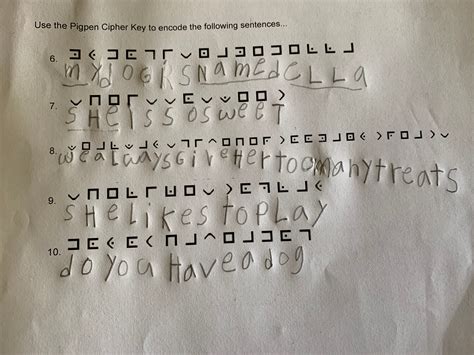 Use the Pigpen Cipher Key to encode the following sentences...
6.
mydogisNamedELLa
7.
SHeissosweeT
8.
wealwaysGiveHertoomanytreats
9.
SHeLikestoPLAY
10.
doyouHaveadog